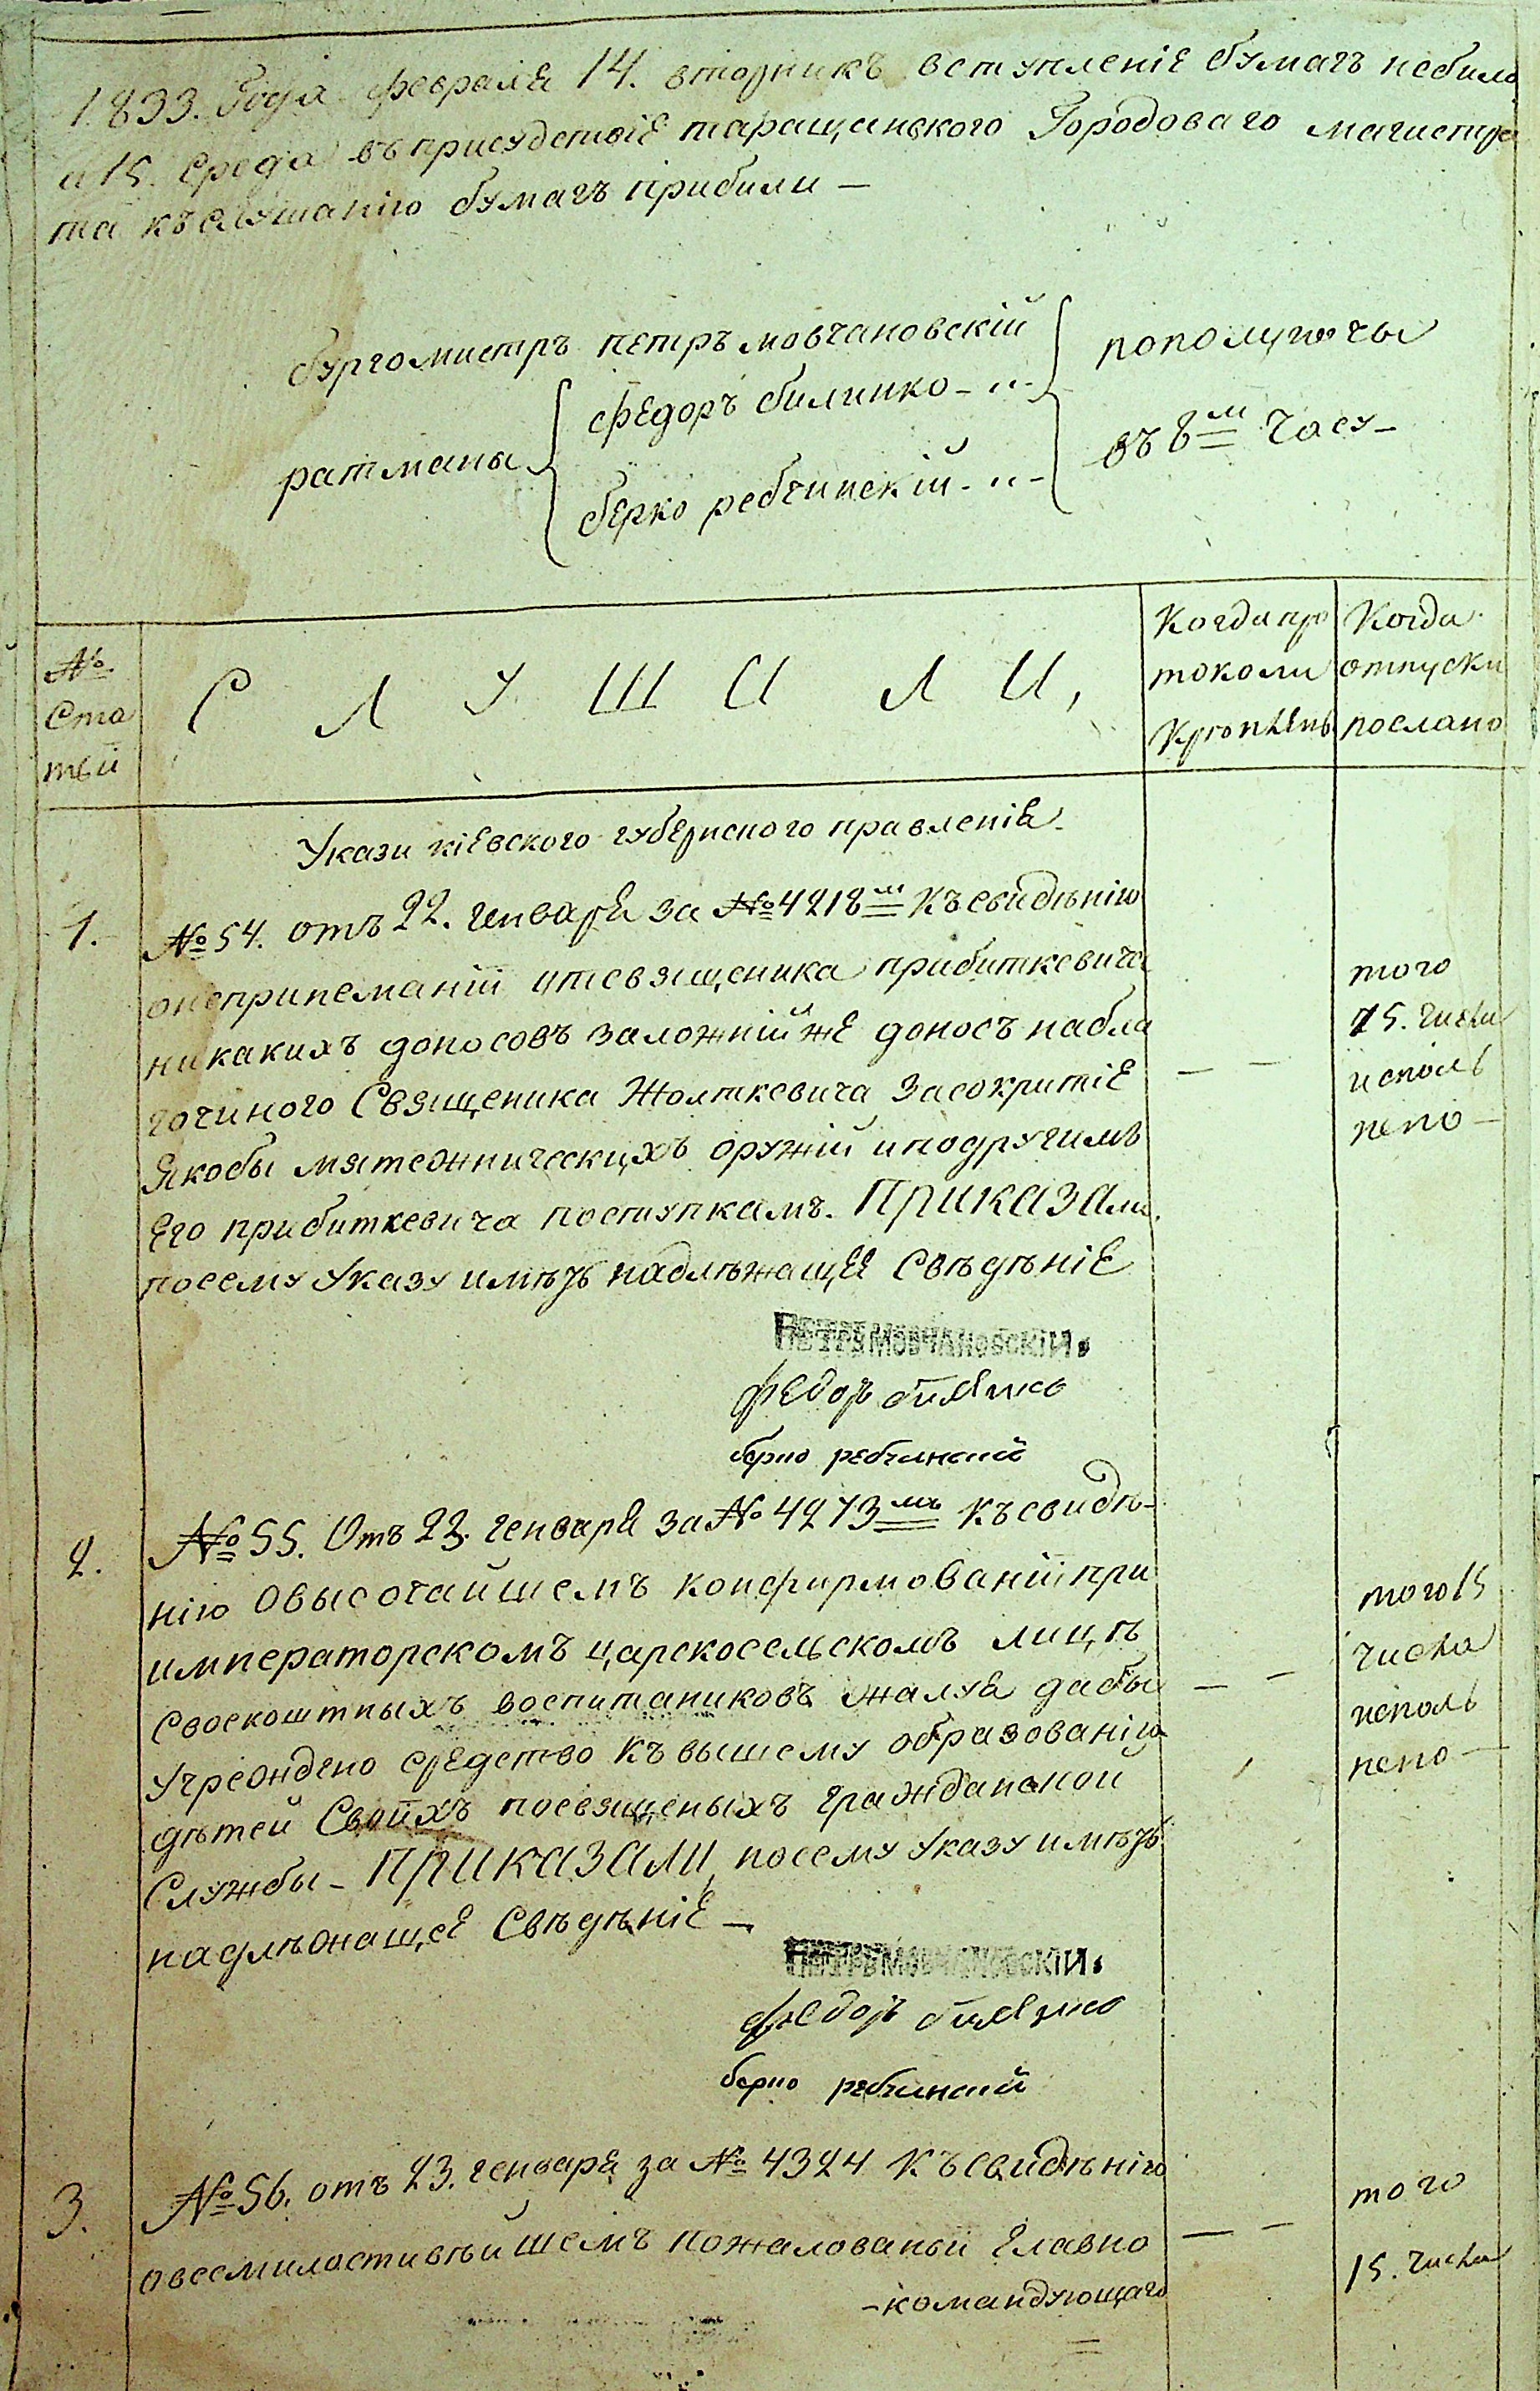 1833. Года февраля 14. вторникъ вступленіе бумагъ небило
а 15. Среда въ присудствіе таращанского Городоваго магистра
та къ слушанію бумагъ прибили —
бургомистръ петръ мовчановскій
пополуночы
ратманы
федоръ билинко - „ -
въ 8м часу -
берко ребчинскій - „ -
№
Ста
тей
С Л У Ш А Л И,
Когда про
токоли
Когда
отпуски
послано
Укази кіевского губернского правленія
1. №54. отъ 22. генваря за №4218м къ свидѣнію
онепринеманіи отсвященика прибиткевича
никакихъ доносовъ заложній же доносъ набла
гочиного Священика Жолткевича засокритіе
якобы мятежническихъ оружій и подругимъ
его прибиткевича поступкамъ. ПРИКАЗАли.
посему Указу имѣть надлѣжащее Свѣдѣніе
того
15. числа
исполь
нено —
ПЕТРЪ МОВЧАНОВСКІЙ.
федоръ билинко
берко ребчинский
2. №55. Отъ 23. генваря за № 4273мъ къ свидѣ-
нію О высочайшемъ конфирмованій при
императорскомъ царскосельскомъ лицѣ
своекоштныхъ воспитаниковъ жалуя дабы
учреждено средство къ вышему образованію
дѣтей Своихъ посвященыхъ гражданской
Службы - ПРИКАЗАЛИ, посему Указу имѣть
надлѣжащее Свѣдѣніе —
того 15
числа
исполь
нено —
ПЕТРЪ МОВЧАНОВСКІЙ.
федоръ билинко
берко ребчинский
3. №56. отъ 23. генваря за № 4324 къ свидѣнію
овсемилостивѣйшемъ пожалованьи Главно
-командующаго
того
15. числа